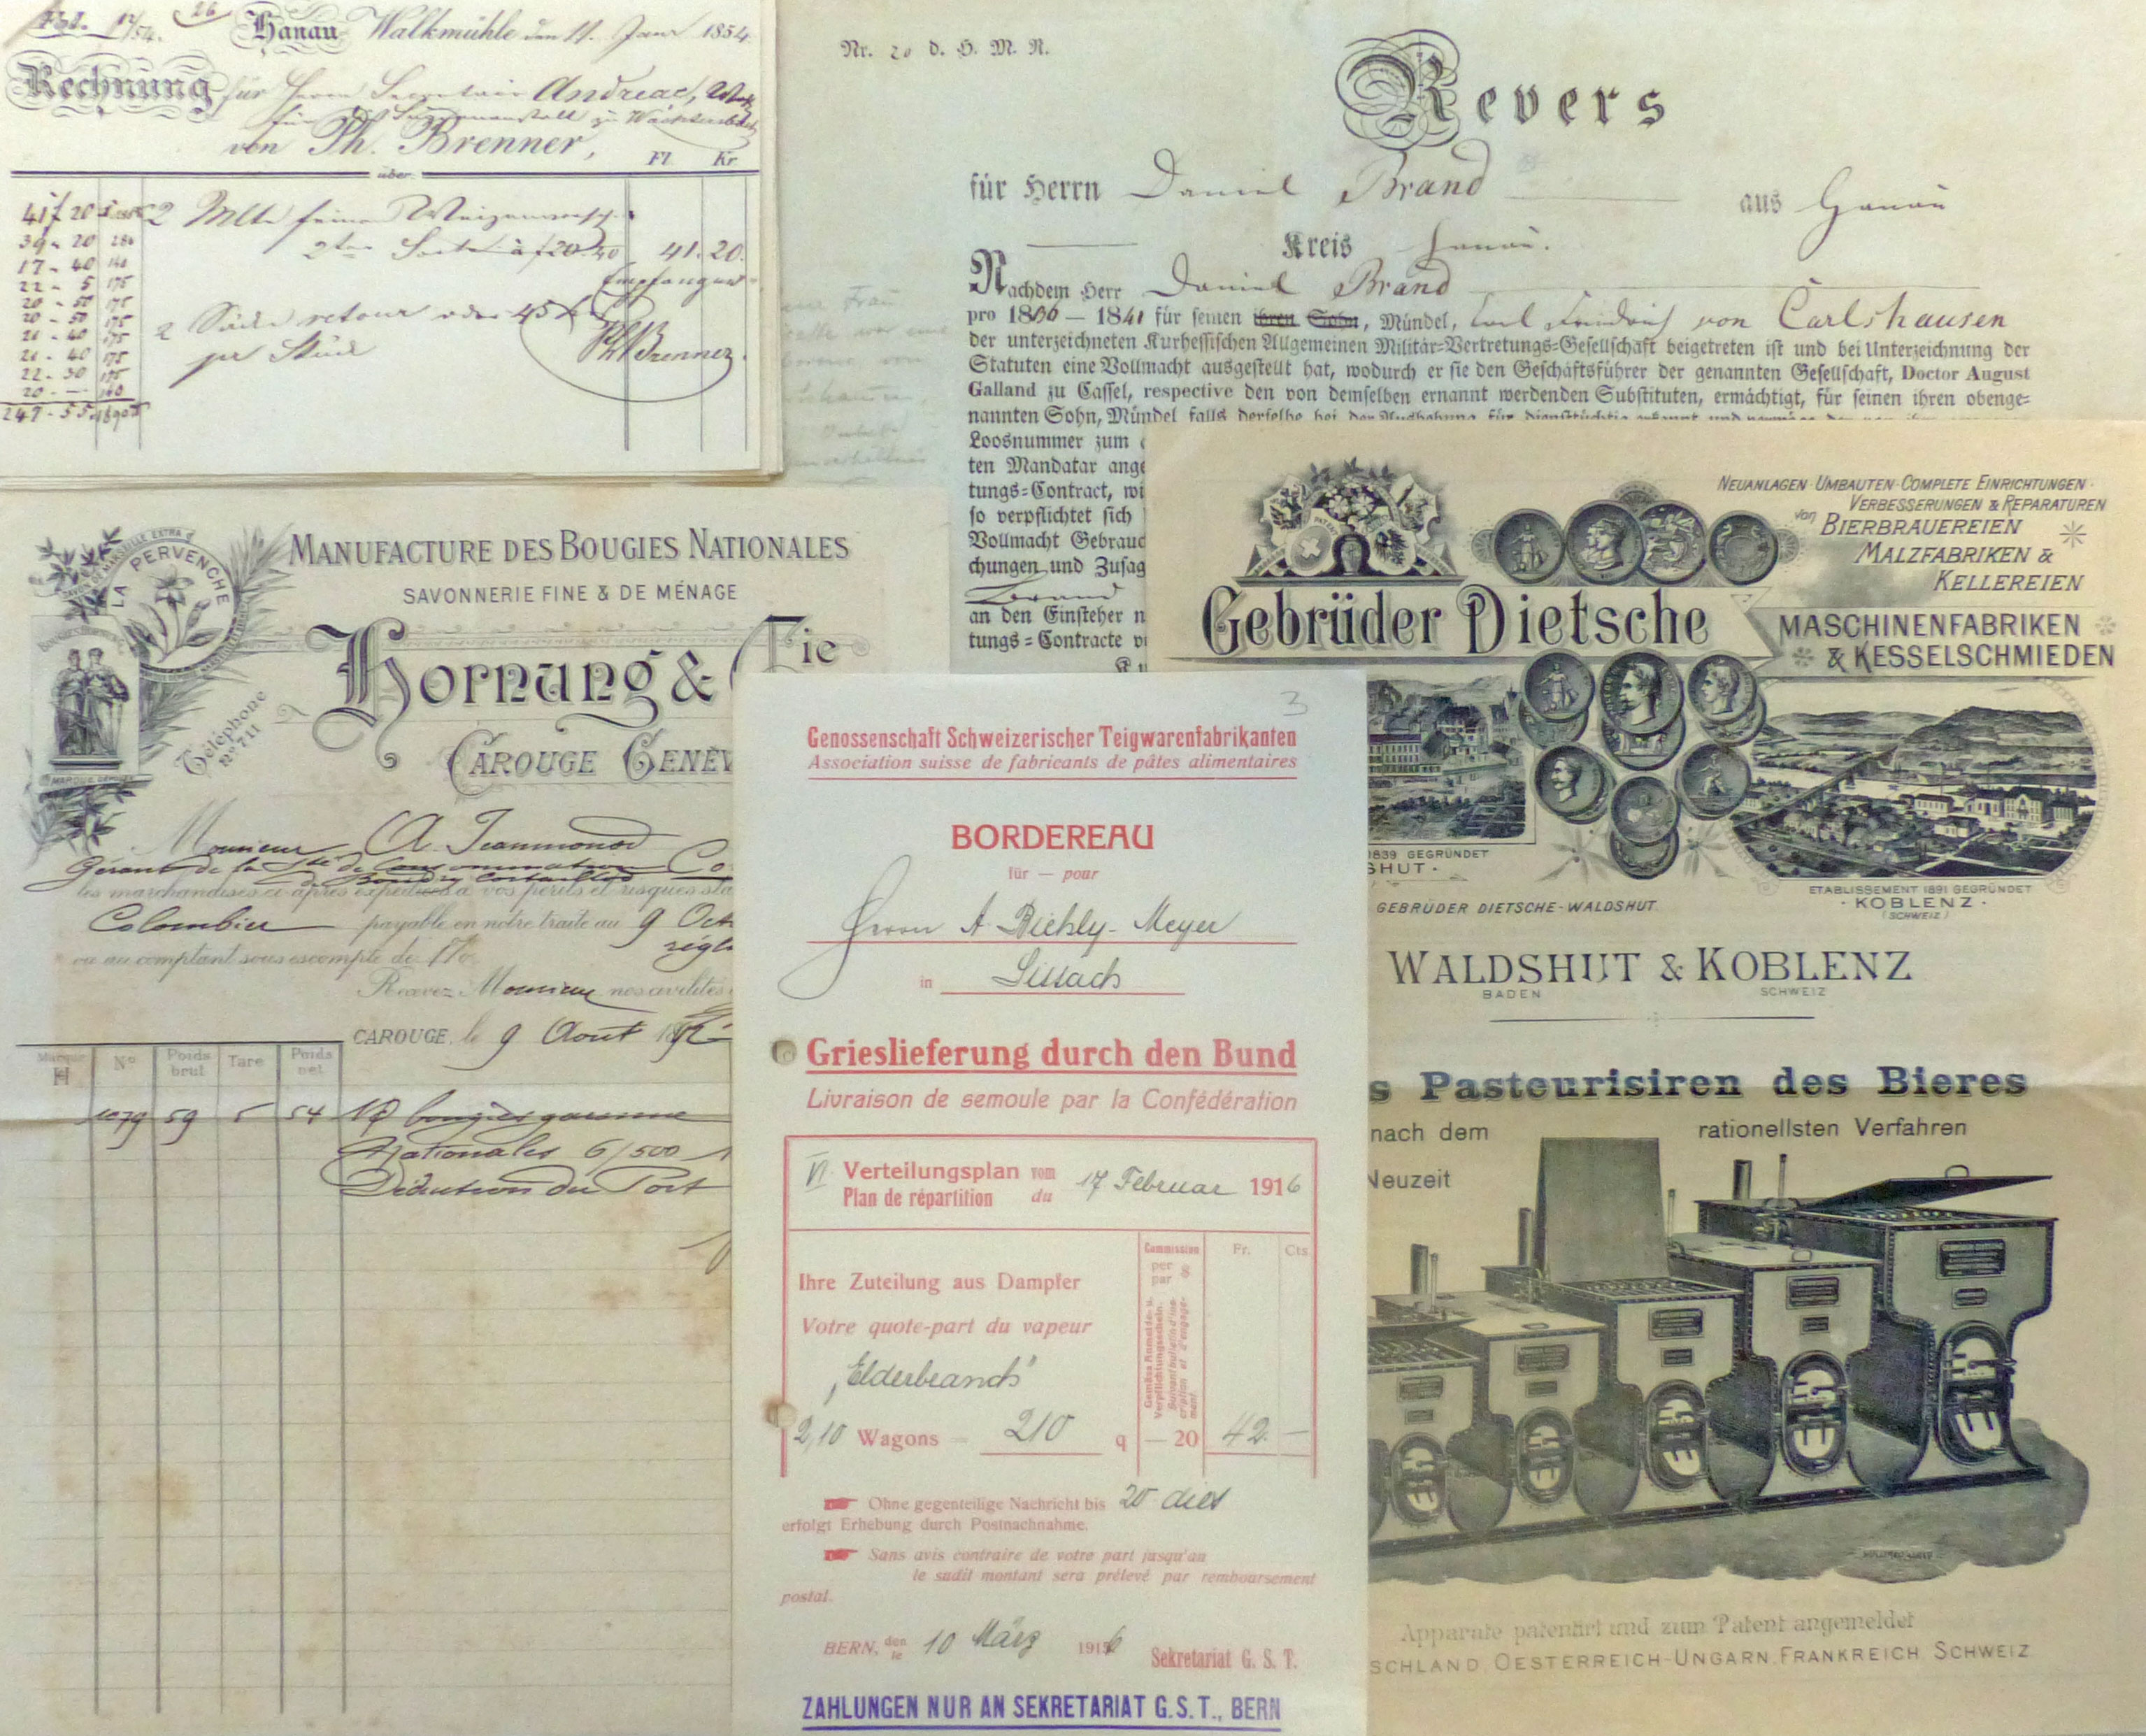 Hanau Walkmühle den 11. Janr 1854.
Rechnung für Herrn Secretair Andreae,
zu Wächtersbach
von Ph. Brenner,
über
Fl Kr
2 Mltr feines
2ter Sorte à f 20.40 41. 20.
Empfangen
2 Säcke retour oder 45 x
pr Stück
Ph. Brenner.
41 f 20
39 - 20
17 - 40 140
22 - 5 175
20 - 50 175
20 - 50 175
21 - 40 175
21 - 40 175
22 - 30 175
20 - — 160
247 - 55
Nr. 20 d. H. M. R.
Revers
für Herrn Daniel Brand aus Hanau
Kreis Hanau.
Nachdem Herr Daniel Brand
pro 1836 — 1841 für seinen ihren Sohn, Mündel, Carl Friedrich von Carlshausen
der unterzeichneten Kurhessischen Allgemeinen Militär-Vertretungs-Gesellschaft beigetreten ist und bei Unterzeichnung der
Statuten eine Vollmacht ausgestellt hat, wodurch er sie den Geschäftsführer der genannten Gesellschaft, Doctor August
Galland zu Cassel, respective den von demselben ernannt werdenden Substituten, ermächtigt, für seinen ihren obenge-
nannten Sohn, Mündel falls derselbe bei der Aushebung für diensttüchtig erkannt und vermöge der
Loosnummer zum
ten Mandatar ange
tungs-Contract, wi
so verpflichtet sich
Vollmacht Gebrauc
chungen und Zusag
Brand
an den Einsteher n
tungs-Contracte v
MANUFACTURE DES BOUGIES NATIONALES
SAVONNERIE FINE & DE MÉNAGE
Hornung & Cie
CAROUGE GENÈV
LA PERVENCHE
MARSEILLE EXTRA
MARQUE DÉPOSÉE
Téléphone
No 711
Monsieur A. Jeanmonod
Gérant de la Sté de Consommation Co
de Boudry Cortaillod
les marchandises ci-après expédiées à vos périls et risques sta
Colombier payable en notre traite au 9 Oct
régl
ou au comptant sous escompte de 1%
Recevez Monsieur nos civilités
CAROUGE, le 9 Aout 18
Marque H No Poids brut Tare Poids net
1079 59 5 54 1 Q bougies
Nationales 6/500
Déduction du Port
NEUANLAGEN · UMBAUTEN · COMPLETE EINRICHTUNGEN ·
VERBESSERUNGEN & REPARATUREN
von BIERBRAUEREIEN
MALZFABRIKEN &
KELLEREIEN
Gebrüder Dietsche
MASCHINENFABRIKEN
& KESSELSCHMIEDEN
1839 GEGRÜNDET
SHUT ·
GEBRÜDER DIETSCHE-WALDSHUT.
ETABLISSEMENT 1891 GEGRÜNDET
· KOBLENZ ·
(SCHWEIZ)
WALDSHUT & KOBLENZ
BADEN SCHWEIZ
s Pasteurisiren des Bieres
nach dem rationellsten Verfahren
Neuzeit
Apparate patentirt und zum Patent angemeldet
SCHLAND, OESTERREICH-UNGARN, FRANKREICH, SCHWEIZ
3
Genossenschaft Schweizerischer Teigwarenfabrikanten
Association suisse de fabricants de pâtes alimentaires
BORDEREAU
für — pour
Herrn A. Bichly-Meyer
in Sissach
Grieslieferung durch den Bund
Livraison de semoule par la Confédération
VI Verteilungsplan vom 17 Februar 1916
Plan de répartition du
Commission per par q Fr. Cts
Gemäss Anmelde- u. Verpflichtungsschein.
Suivant bulletin d'inscription et d'engagement.
Ihre Zuteilung aus Dampfer
Votre quote-part du vapeur
„Elderbranch"
2,10 Wagons = 210 q — 20 42 —
Ohne gegenteilige Nachricht bis 20 dies
erfolgt Erhebung durch Postnachnahme.
Sans avis contraire de votre part jusqu'au
le sudit montant sera prélevé par remboursement
postal.
BERN, den le 10 März 1916 Sekretariat G. S. T.
ZAHLUNGEN NUR AN SEKRETARIAT G.S.T., BERN